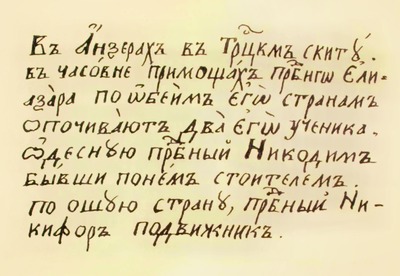 Въ А҆́нзерахъ въ Трⷪ҇цкмъ скитꙋ̀.
въ часо́вне примоща́хъ прⷣбнгѡ Є҆ли-
аза́ра по ѡ҆бѣимъ є҆гѡ̀ странамъ
ѻпочива́ютъ два̀ є҆гѡ̀ ученика.
Ѡ҆десную прⷣбный Никодимъ
бывши поне́мъ стоителемъ.
по ошую страну, прⷣбный Ни-
кифоръ подвижникъ.